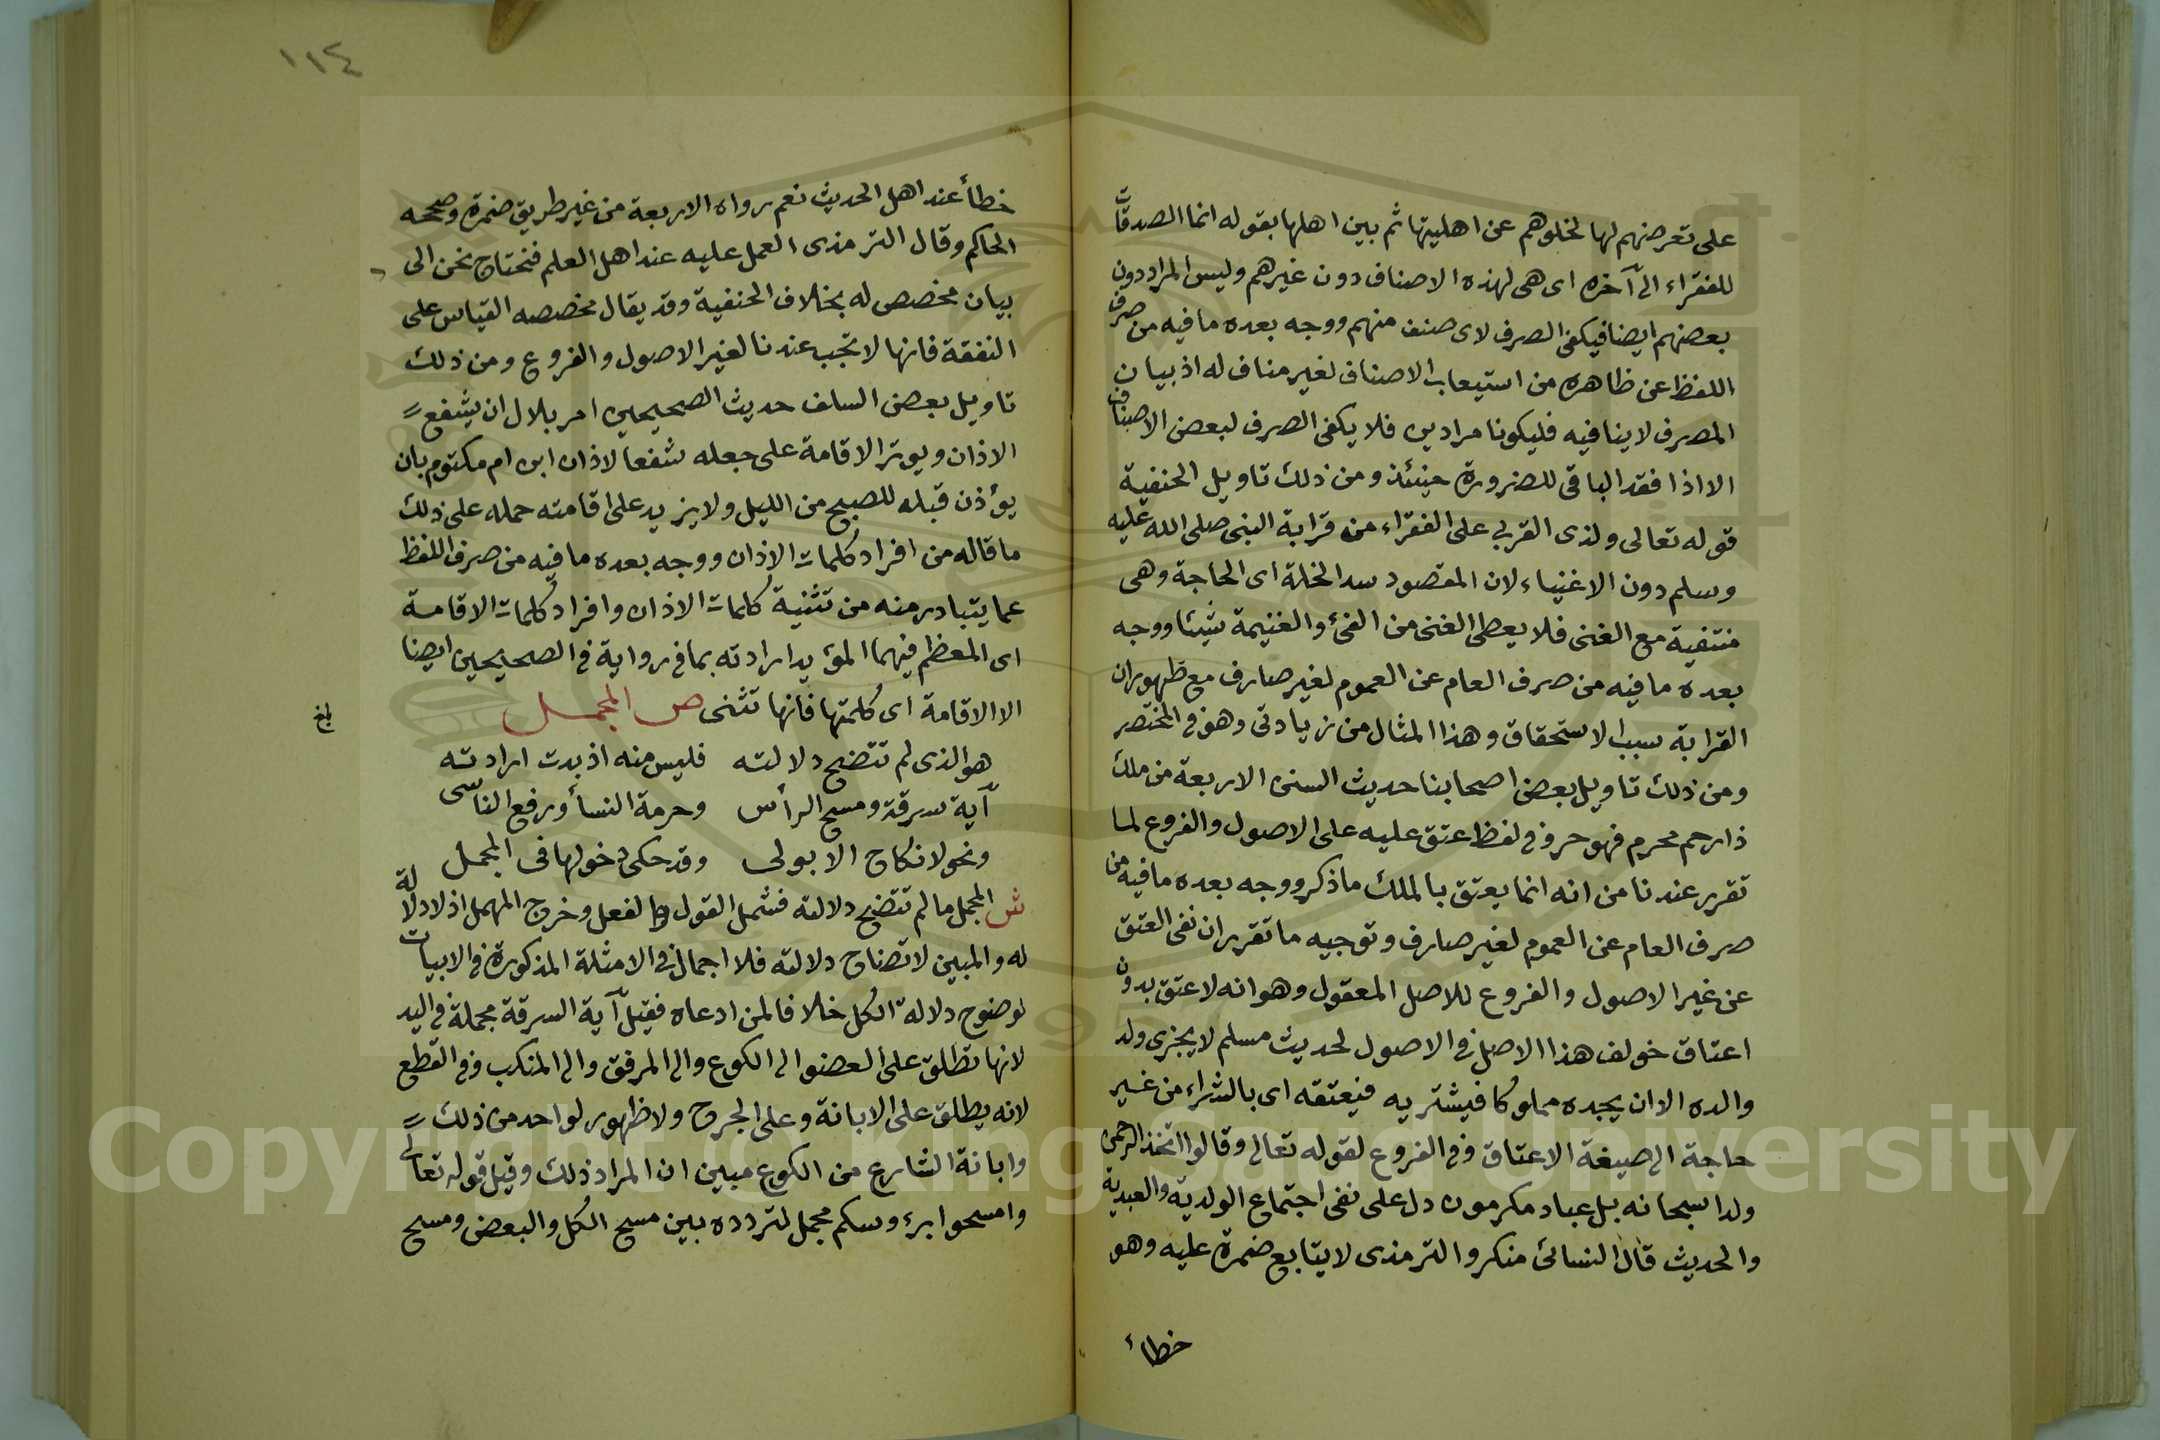 على تعرضهم لها لخلوهم عن اهليتها ثم بين اهلها بقوله انما الصدقات
للفقراء الى آخره اى هى لهذه الاصناف دون غيرهم وليس المراد دون
بعضهم ايضا فيكفى الصرف لاى صنف منهم ووجه بعده ما فيه من صرف
اللفظ عن ظاهره من استيعاب الاصناف لغير مناف له اذ بيان
المصرف لا ينافيه فليكونا مرادين فلا يكفى الصرف لبعض الاصناف
الا اذا فقد الباقى للضرورة حينئذ ومن ذلك تاويل الحنفية
قوله تعالى ولذى القربى على الفقراء من قرابة النبى صلى الله عليه
وسلم دون الاغنياء لان المقصود سد الخلة اى الحاجة وهى
منتفية مع الغنى فلا يعطى الغنى من الفئ والغنيمة شيئا ووجه
بعده ما فيه من صرف العام عن العموم لغير صارف مع ظهور ان
القرابة سبب الاستحقاق وهذا المثال من زيادتى وهو فى المختصر
ومن ذلك تاويل بعض اصحابنا حديث السنن الاربعة من ملك
ذا رحم محرم فهو حر وفى لفظ عتق عليه على الاصول والفروع لما
تقرر عندنا من انه انما يعتق بالملك ما ذكر ووجه بعده ما فيه من
صرف العام عن العموم لغير صارف وتوجيه ما تقرر ان نفى العتق
عن غير الاصول والفروع للاصل المعقول وهو انه لا عتق بدون
اعتاق خولف هذا الاصل فى الاصول لحديث مسلم لا يجزى ولد
والده الا ان يجده مملوكا فيشتريه فيعتقه اى بالشراء من غير
حاجة الى صيغة الاعتاق وفى الفروع لقوله تعالى وقالوا اتخذ الرحمن
ولدا سبحانه بل عباد مكرمون دل على نفى اجتماع الولدية والعبدية
والحديث قال النسائى منكر والترمذى لا يتابع ضمرة عليه وهو
خطاء
١١٤
خطأ عند اهل الحديث نعم رواه الاربعة من غير طريق ضمرة وصححه
الحاكم وقال الترمذى العمل عليه عند اهل العلم فنحتاج نحن الى
بيان مخصص له بخلاف الحنفية وقد يقال مخصصه القياس على
النفقة فانها لا تجب عندنا لغير الاصول والفروع ومن ذلك
تاويل بعض السلف حديث الصحيحين امر بلال ان يشفع
الاذان ويوتر الاقامة على جعله شفعا لاذان ابن ام مكتوم بان
يؤذن قبله للصبح من الليل ولا يزيد على اقامته حمله على ذلك
ما قاله من افراد كلمات الاذان ووجه بعده ما فيه من صرف اللفظ
عما يتبادر منه من تثنية كلمات الاذان وافراد كلمات الاقامة
اى المعظم فيهما المؤيد ارادته بما فى رواية فى الصحيحين ايضا
الا الاقامة اى كلمتها فانها تثنى ص المجمل
بلغ
هو الذى لم تتضح دلالته فليس منه اذ بدت ارادته
آية سرقة ومسح الرأس وحرمة النسأ ورفع الناسى
ونحو لا نكاح الا بولى وقد حكى دخولها فى المجمل
ش المجمل ما لم تتضح دلالته فشمل القول والفعل وخرج المهمل اذ لا دلالة
له والمبين لاتضاح دلالته فلا اجمال فى الامثلة المذكورة فى الابيات
لوضوح دلالة الكل خلافا لمن ادعاه فقيل آية السرقة مجملة فى اليد
لانها تطلق على العضو الى الكوع والى المرفق والى المنكب وفى القطع
لانه يطلق على الابانة وعلى الجرح ولا ظهور لواحد من ذلك
وابانة الشارع من الكوع مبين ان المراد ذلك وقيل قوله تعالى
وامسحوا برءوسكم مجمل لتردده بين مسح الكل والبعض ومسح
Copyright © King Saud University